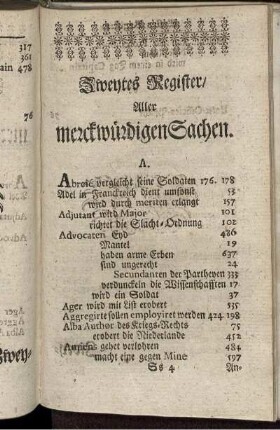 317
361
ain 478
76
Zweytes Register/
Aller
merckwürdigen Sachen.
A.
vergleicht seine Soldaten 176. 178
Adel in Franckreich dient umsonst 53
wird durch meriten erlangt 157
Adjutant wird Major 101
richtet die Slacht-Ordnung 102
Advocaten Eyd 486
Mantel 19
haben arme Erben 637
sind ungerecht 24
Secundanten der Partheyen 333
verdunckeln die Wissenschafften 17
wird ein Soldat 37
Ager wird mit list erobert 535
Aggregirte sollen employiret werden 424. 198
Alba Author des Kriegs-Rechts 75
erobert die Niederlande 452
gehet verlohren 484
macht eine gegen Mine 597
Ss 4 An-
Zwey-